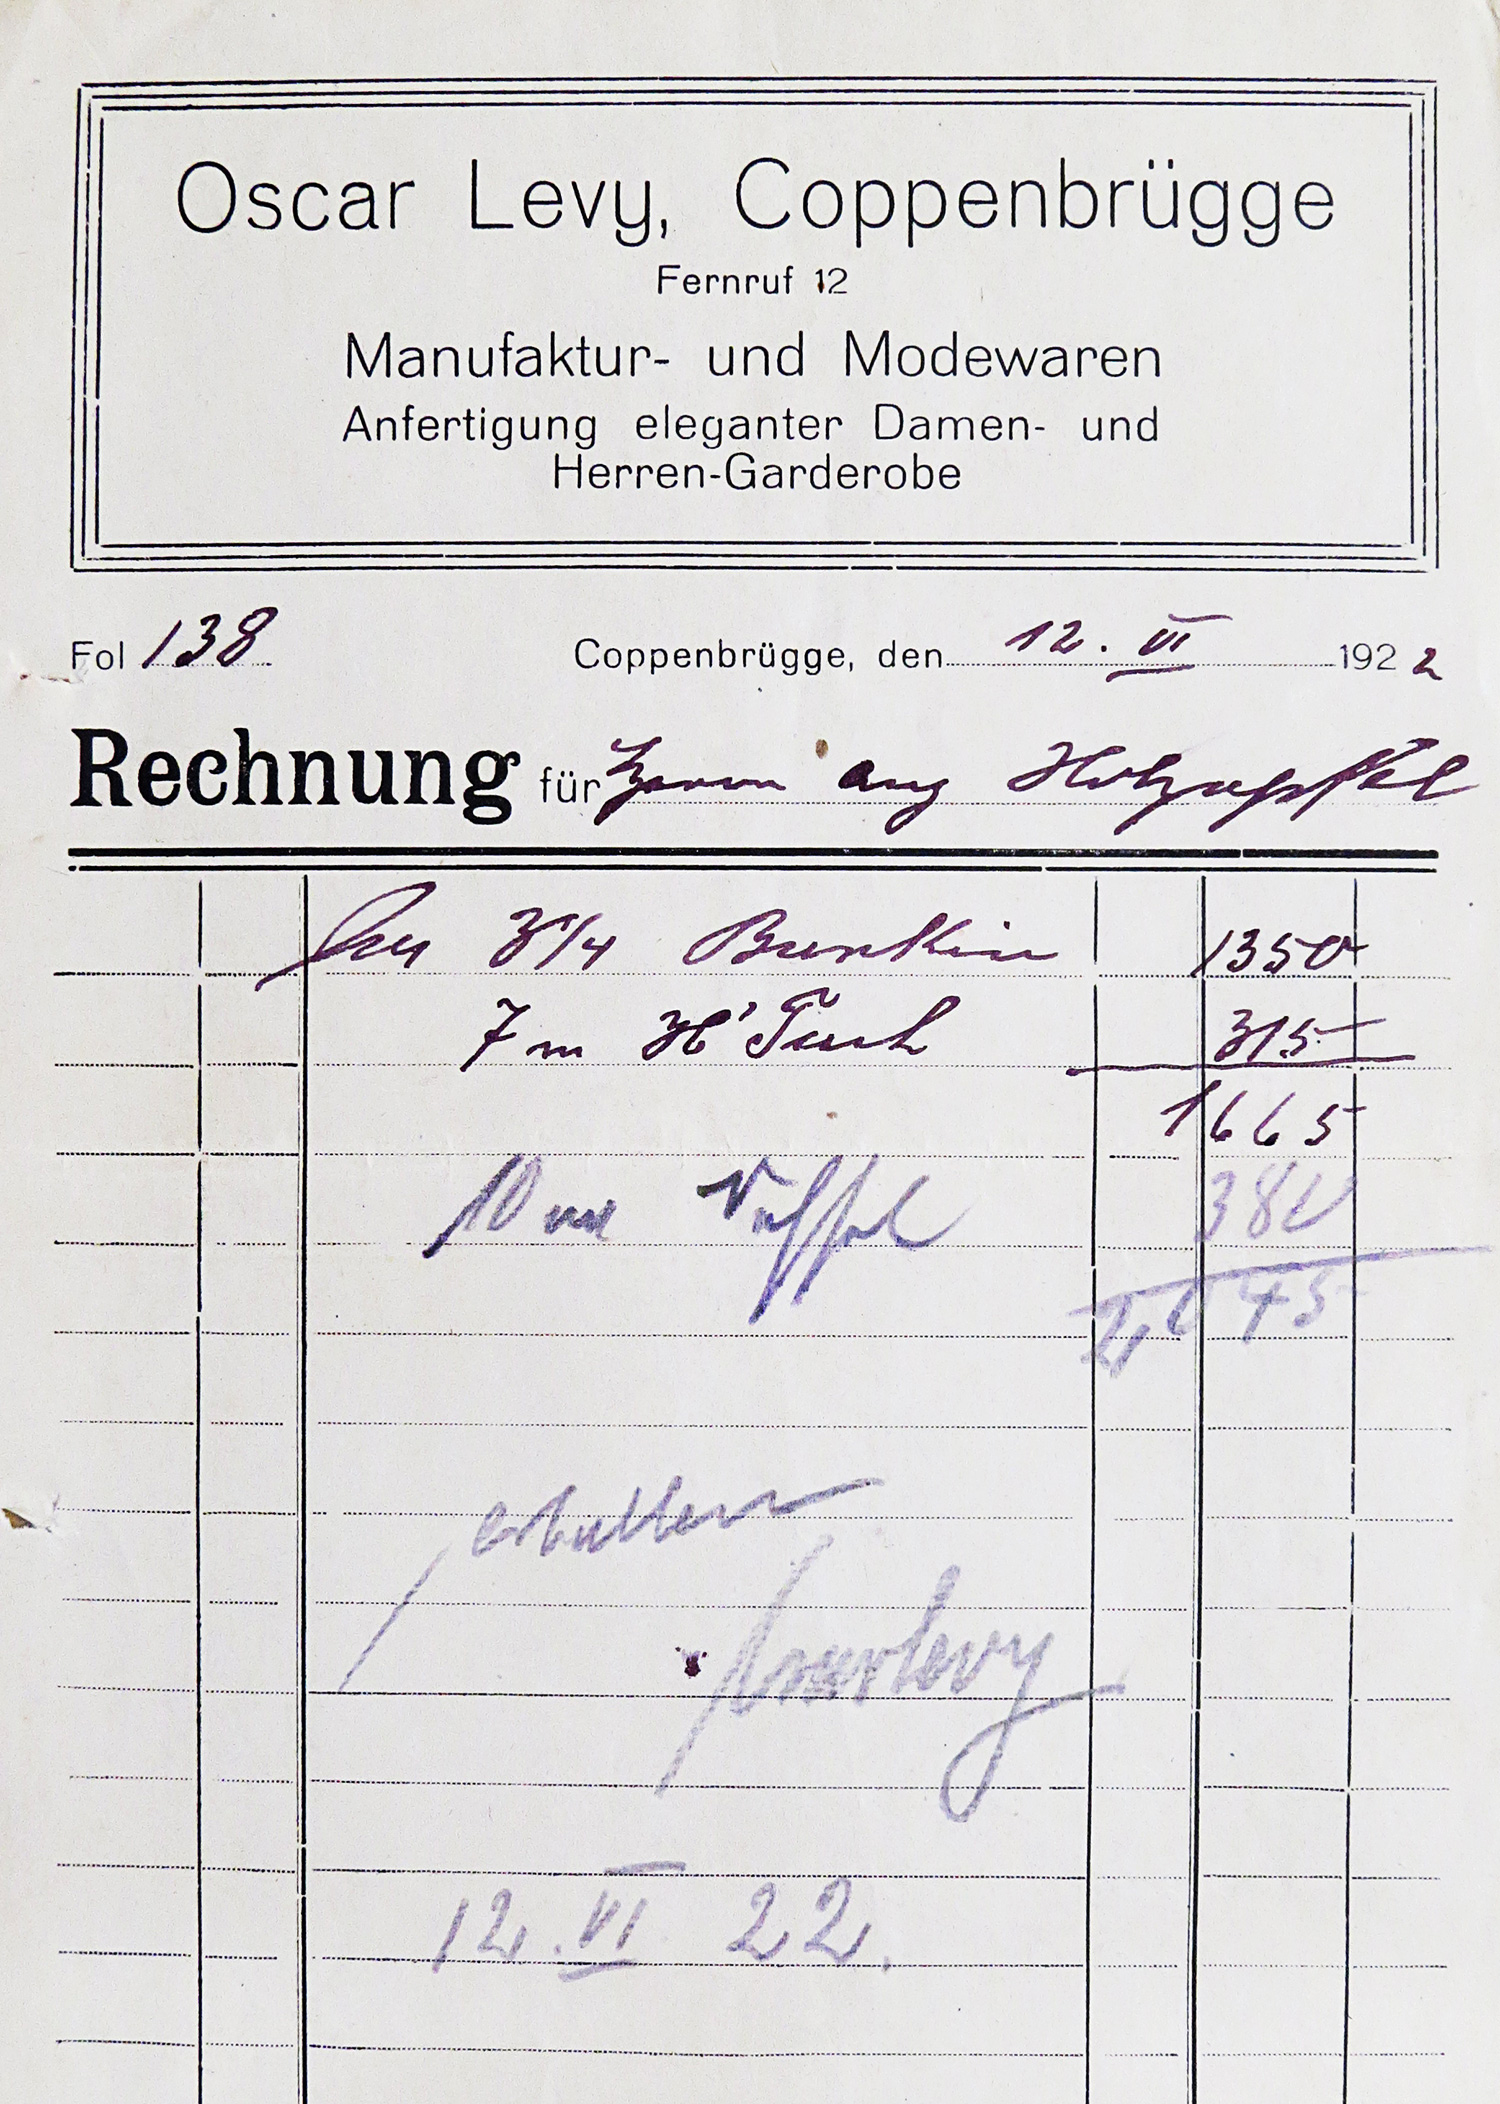 Oscar Levy, Coppenbrügge
Fernruf 12
Manufaktur- und Modewaren
Anfertigung eleganter Damen- und
Herren-Garderobe
Fol 138 Coppenbrügge, den 12. VI 1922
Rechnung für Herrn Aug Holzapfel
3 1/4 Bunkin 1350
7 m H'Tuch 315
1665
10 m 380
2045
erhalten
Oscar Levy
12. VI 22.